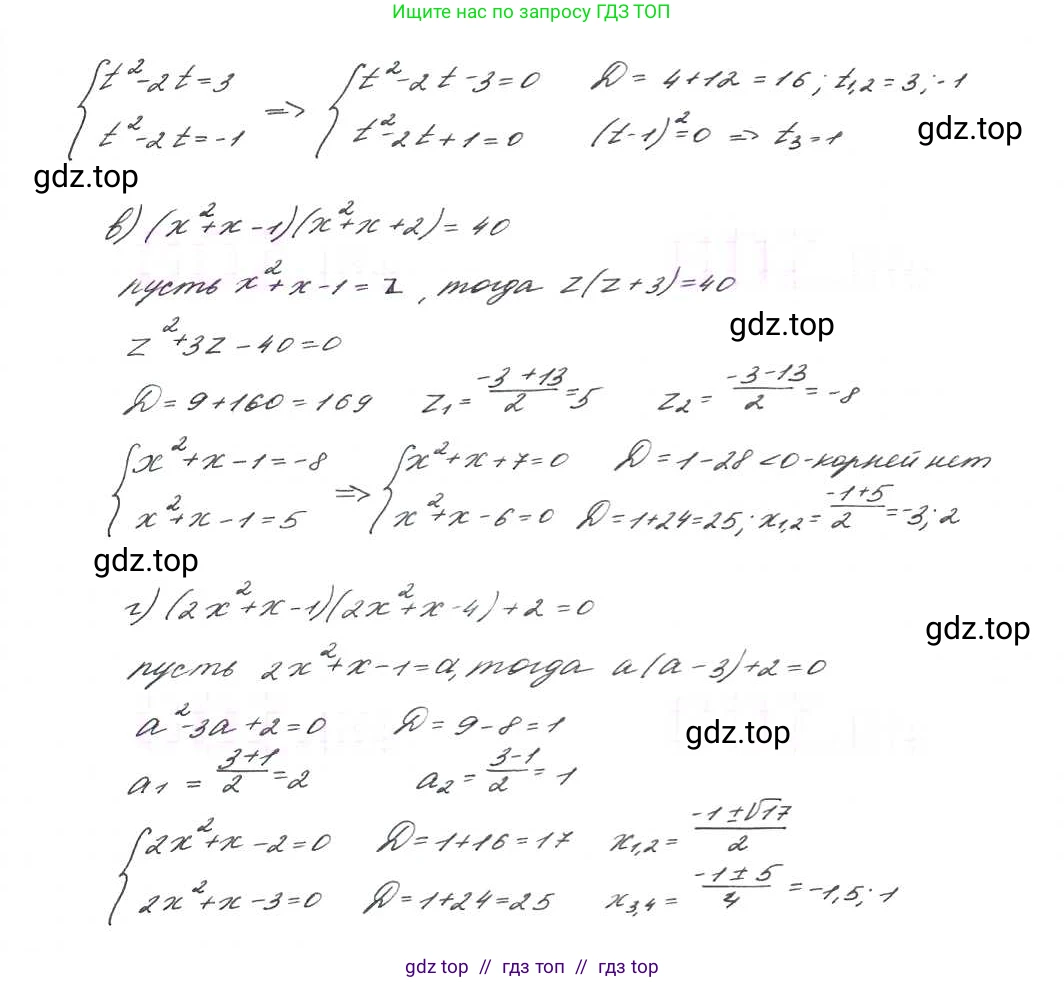 Ищите нас по запросу ГДЗ ТОП
{t²-2t=3 => {t²-2t-3=0 D=4+12=16; t₁,₂=3; -1
{t²-2t=-1 {t²-2t+1=0 (t-1)²=0 => t₃=1
gdz.top
gdz.top
в) (x²+x-1)(x²+x+2)=40
пусть x²+x-1=z, тогда z(z+3)=40
gdz.top
z²+3z-40=0
D=9+160=169 z₁=(-3+13)/2=5 z₂=(-3-13)/2=-8
{x²+x-1=-8 => {x²+x+7=0 D=1-28<0-корней нет
{x²+x-1=5 {x²+x-6=0 D=1+24=25; x₁,₂=(-1+5)/2=-3; 2
gdz.top
г) (2x²+x-1)(2x²+x-4)+2=0
gdz.top
пусть 2x²+x-1=a, тогда a(a-3)+2=0
a²-3a+2=0 D=9-8=1
gdz.top
a₁=(3+1)/2=2 a₂=(3-1)/2=1
{2x²+x-2=0 D=1+16=17 x₁,₂=(-1±√17)/2
{2x²+x-3=0 D=1+24=25 x₃,₄=(-1±5)/4=-1,5; 1
gdz top // гдз топ // gdz top